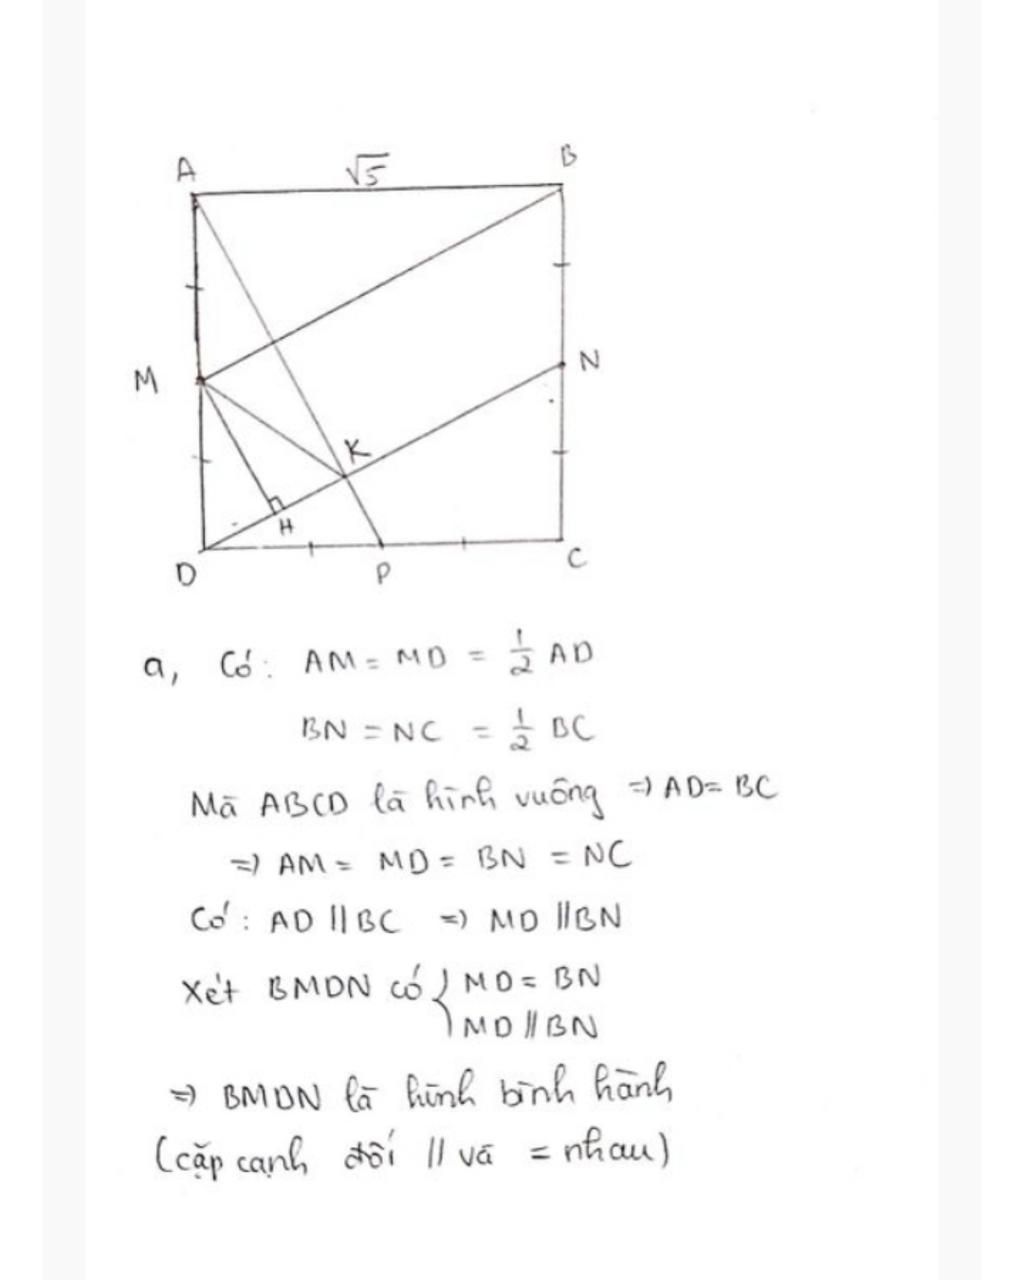 A
√5
B
M
N
K
H
D
P
C
a, Có: AM = MD = 1/2 AD
BN = NC = 1/2 BC
Mà ABCD là hình vuông => AD = BC
=> AM = MD = BN = NC
Có: AD // BC => MD // BN
Xét BMDN có { MD = BN
MD // BN
=> BMDN là hình bình hành
(cặp cạnh đối // và = nhau)